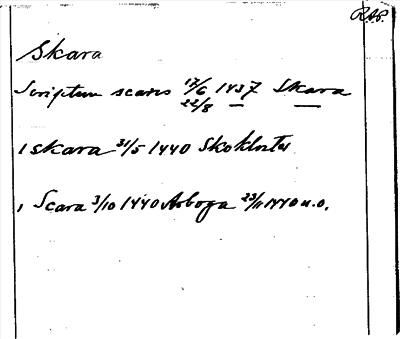 R.A.P.
Skara
Scriptum scaris 17/6 1437 Skara
22/8 — —
i skara 31/5 1440 Skokloster
i Scara 3/10 1440 Arboga 23/11 1440 u.o.